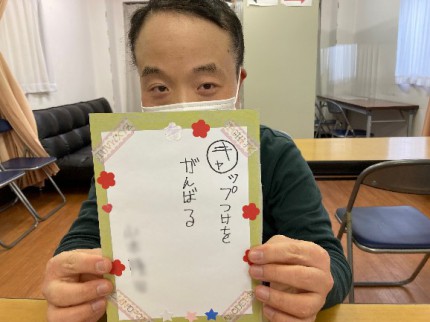 キャップつけを
がんばる